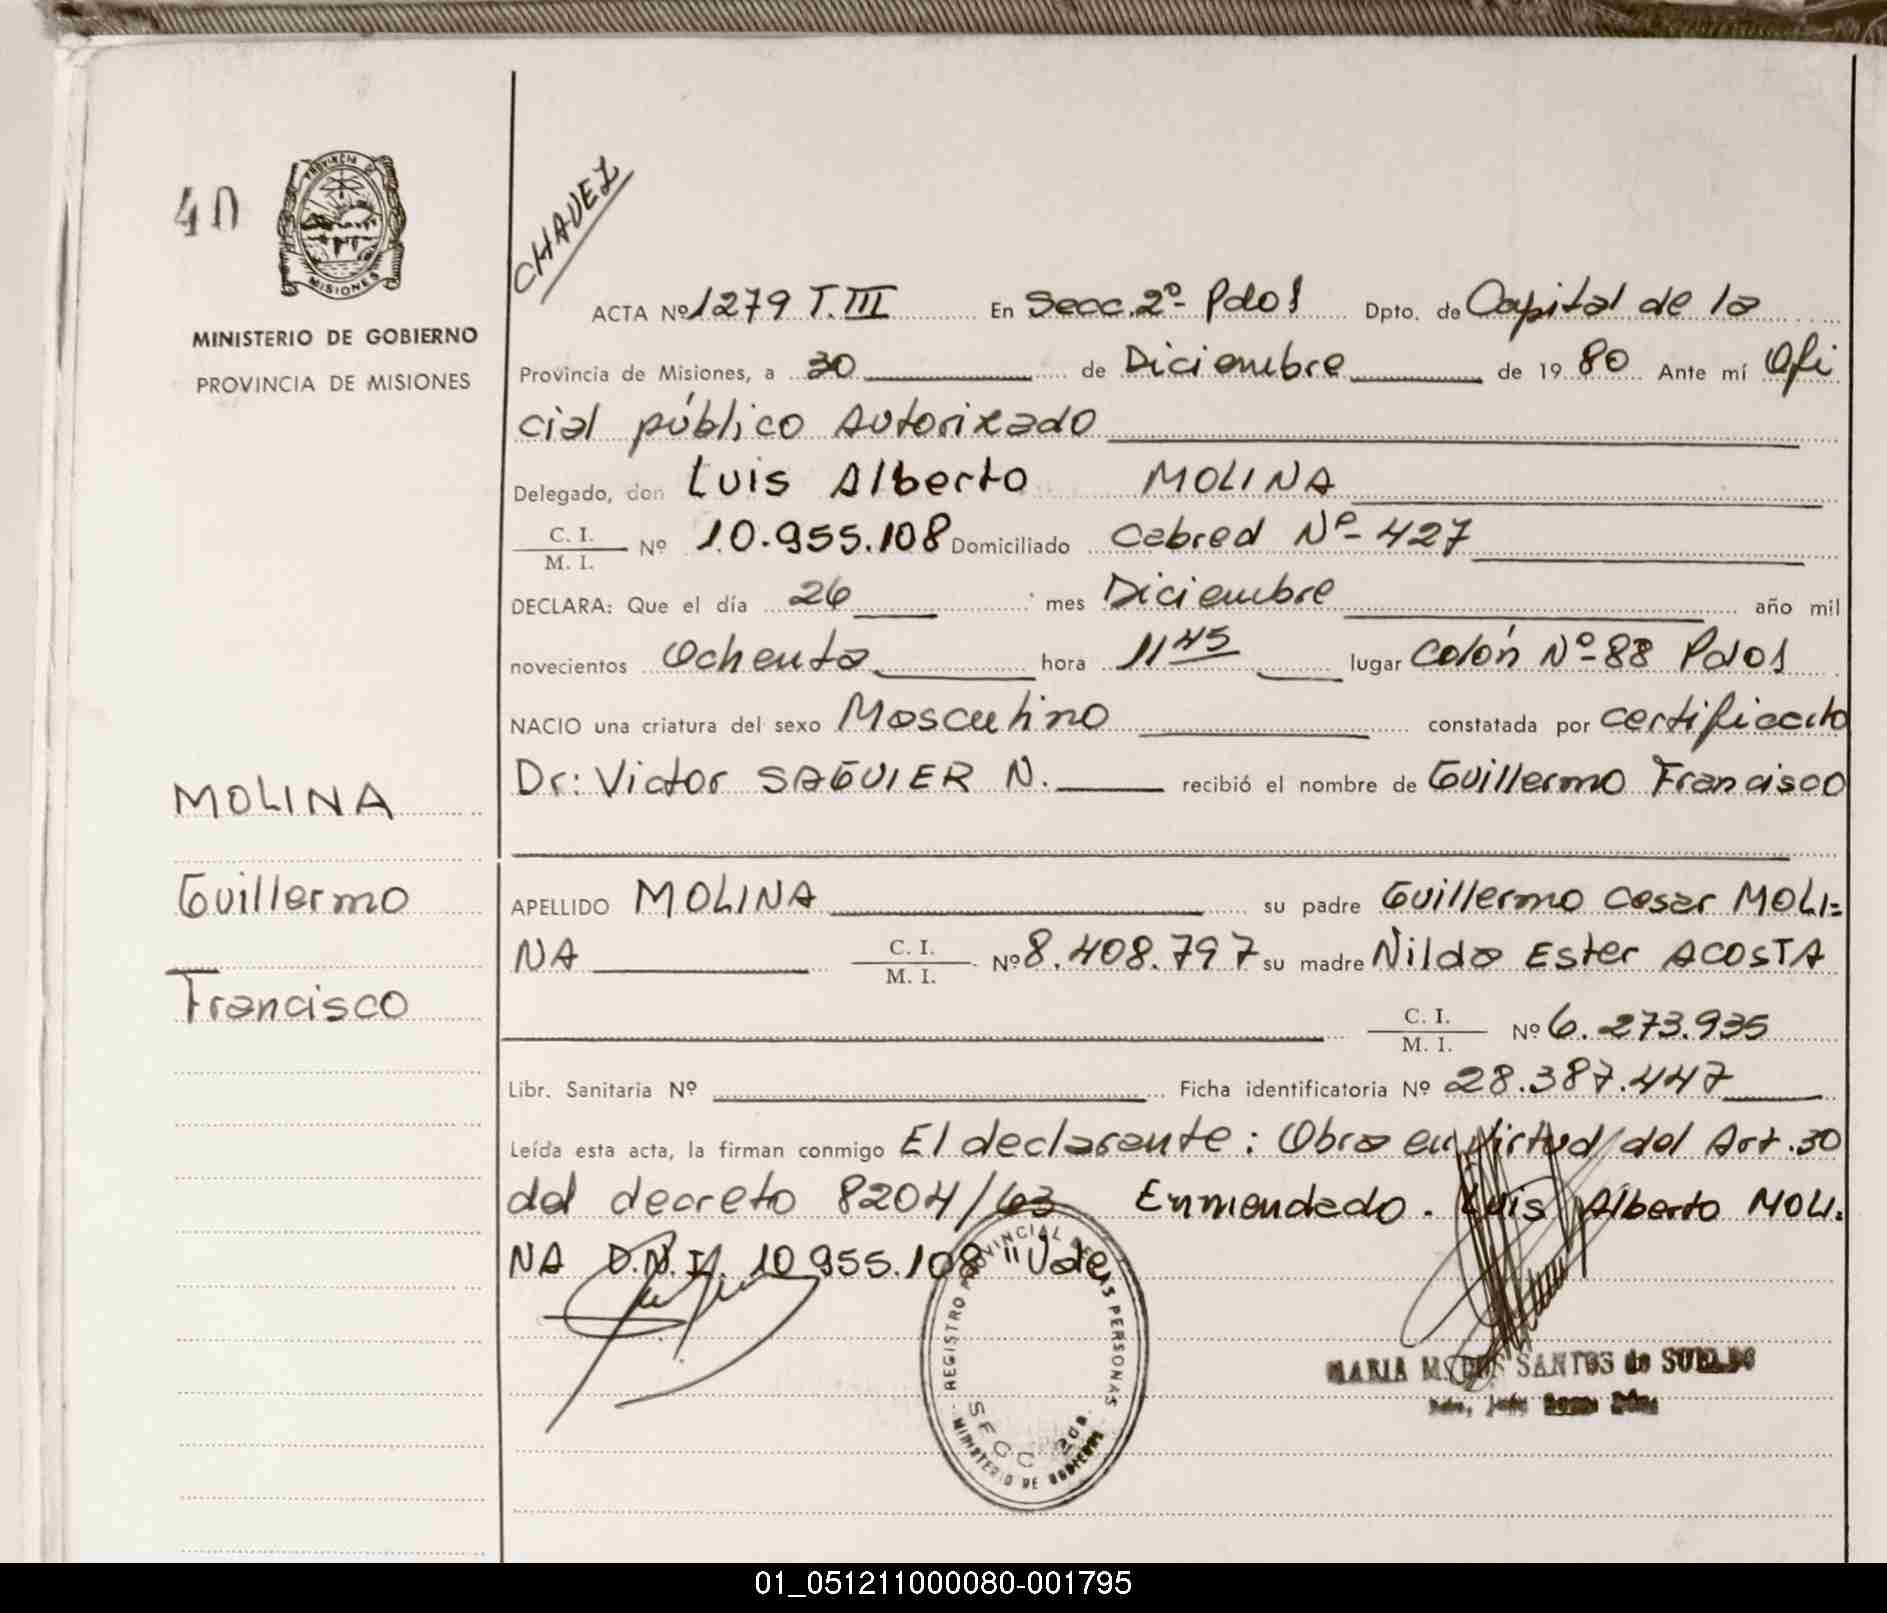 40
PROVINCIA DE
MISIONES
MINISTERIO DE GOBIERNO
PROVINCIA DE MISIONES
CHAVEZ
ACTA Nº 1279 T.III En Secc. 2º- Pdos Dpto. de Capital de la
Provincia de Misiones, a 30 de Diciembre de 1980 Ante mí Ofi
cial público Autorizado
Delegado, don Luis Alberto MOLINA
C. I.
M. I. Nº 10.955.108 Domiciliado Cabred Nº- 427
DECLARA: Que el día 26 mes Diciembre año mil
novecientos Ochenta hora 11 45 lugar Colón Nº-88 Pdos
NACIO una criatura del sexo Masculino constatada por certificado
Dr: Victor SAGUIER N. recibió el nombre de Guillermo Francisco
MOLINA
Guillermo
Francisco
APELLIDO MOLINA su padre Guillermo Cesar MOLI=
NA C. I.
M. I. Nº 8.408.797 su madre Nilda Ester ACOSTA
C. I.
M. I. Nº 6.273.935
Libr. Sanitaria Nº Ficha identificatoria Nº 28.387.447
Leída esta acta, la firman conmigo El declarante: Obra en virtud del Art. 30
del decreto 8204/63 Enmendado. Luis Alberto MOLI.
NA D.N.I. 10.955.108 "Vale
REGISTRO PROVINCIAL DE LAS PERSONAS
SECC 2da.
MINISTERIO DE GOBIERNO
MARIA M. SANTOS de SUELDO
01_051211000080-001795